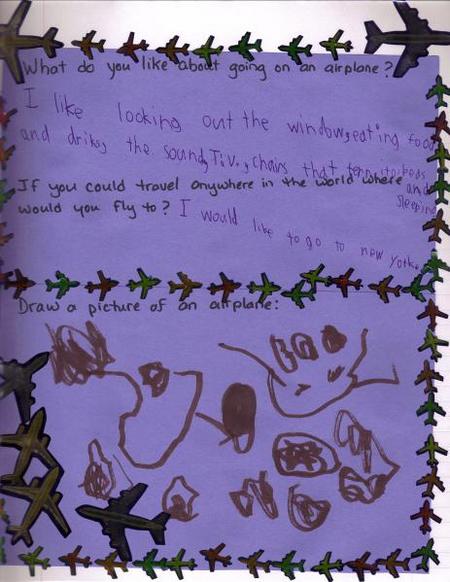 What do you like about going on an airplane?
I like looking out the window, eating food
and driks, the sound, T.V., chairs that
and
If you could travel anywhere in the world where
sleeping
would you fly to? I would like to go to new york.
Draw a picture of an airplane: